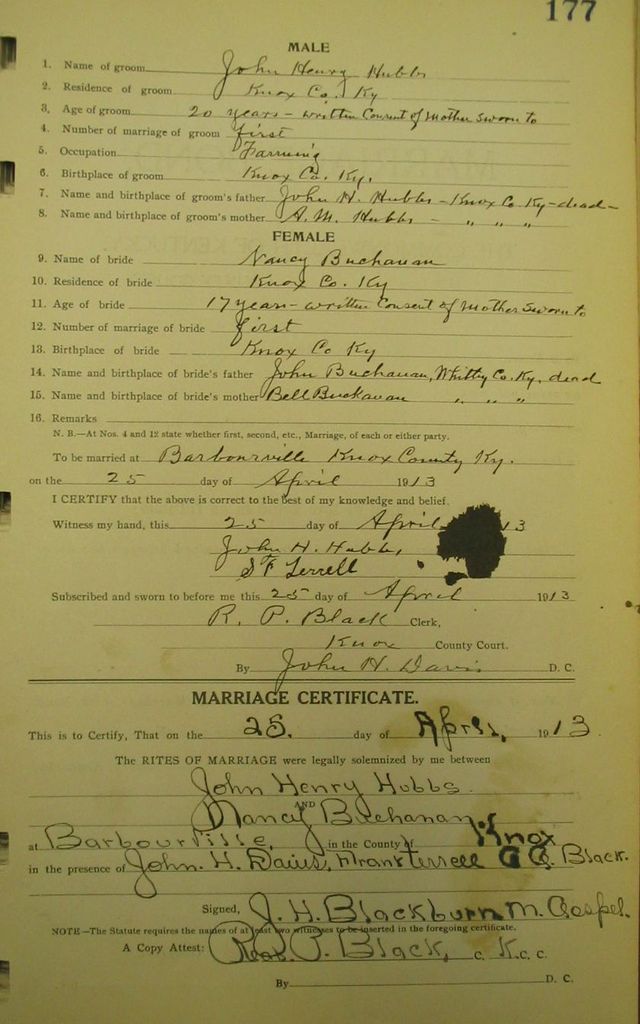 177
MALE
1. Name of groom John Henry Hubbs
2. Residence of groom Knox Co. Ky
3. Age of groom 20 years - written Consent of Mother sworn to
4. Number of marriage of groom first
5. Occupation Farming
6. Birthplace of groom Knox Co. Ky.
7. Name and birthplace of groom's father John H. Hubbs - Knox Co. Ky - dead -
8. Name and birthplace of groom's mother A. M. Hubbs - " " "
FEMALE
9. Name of bride Nancy Buchanan
10. Residence of bride Knox Co. Ky
11. Age of bride 17 years - written Consent of Mother sworn to
12. Number of marriage of bride first
13. Birthplace of bride Knox Co Ky
14. Name and birthplace of bride's father John Buchanan, Whitley Co. Ky. dead
15. Name and birthplace of bride's mother Bell Buchanan " " "
16. Remarks
N. B.—At Nos. 4 and 12 state whether first, second, etc., Marriage, of each or either party.
To be married at Barbourville Knox County Ky.
on the 25 day of April 1913
I CERTIFY that the above is correct to the best of my knowledge and belief.
Witness my hand, this 25 day of April 13
John H. Hubbs,
S F Terrell
Subscribed and sworn to before me this 25 day of April 1913
R. P. Black Clerk,
Knox County Court.
By John H. Davis D. C.
MARRIAGE CERTIFICATE.
This is to Certify, That on the 25. day of April, 1913.
The RITES OF MARRIAGE were legally solemnized by me between
John Henry Hubbs.
AND
Nancy Buchanan.
at Barbourville, in the County of Knox
in the presence of John. H. Davis, Frank Terrell Black.
Signed, J. H. Blackburn M. Gospel.
NOTE—The Statute requires the names of at least two witnesses to be inserted in the foregoing certificate.
A Copy Attest: P. Black, C. K. C. C.
By D. C.